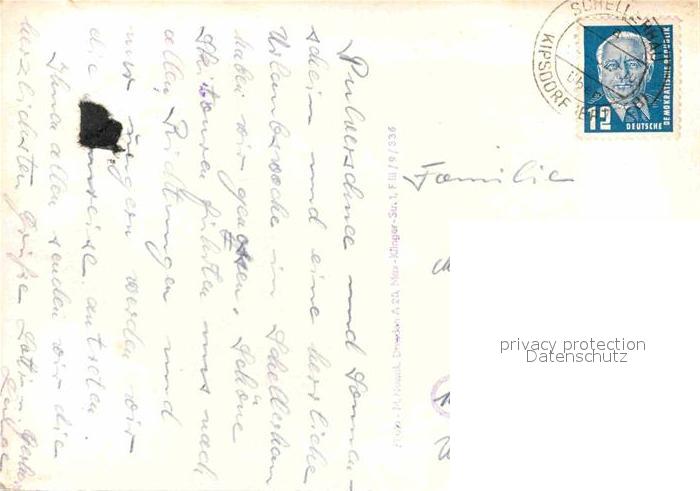 Pulverschnee und Sonnen-
schein und eine herrliche
Urlaubswoche in Schellerhau
haben wir genossen. Schöne
Skitouren führten uns nach
allen Richtungen und
nur ungern werden wir
die Heimreise antreten.
Ihnen allen senden wir die
herzlichsten Grüße
Foto: M. Nowak, Dresden A 20, Max-Klinger-Str. 1, F III/9/336
Familie
SCHELLERHAU
KIPSDORF
12
DEUTSCHE
DEMOKRATISCHE REPUBLIK
privacy protection
Datenschutz